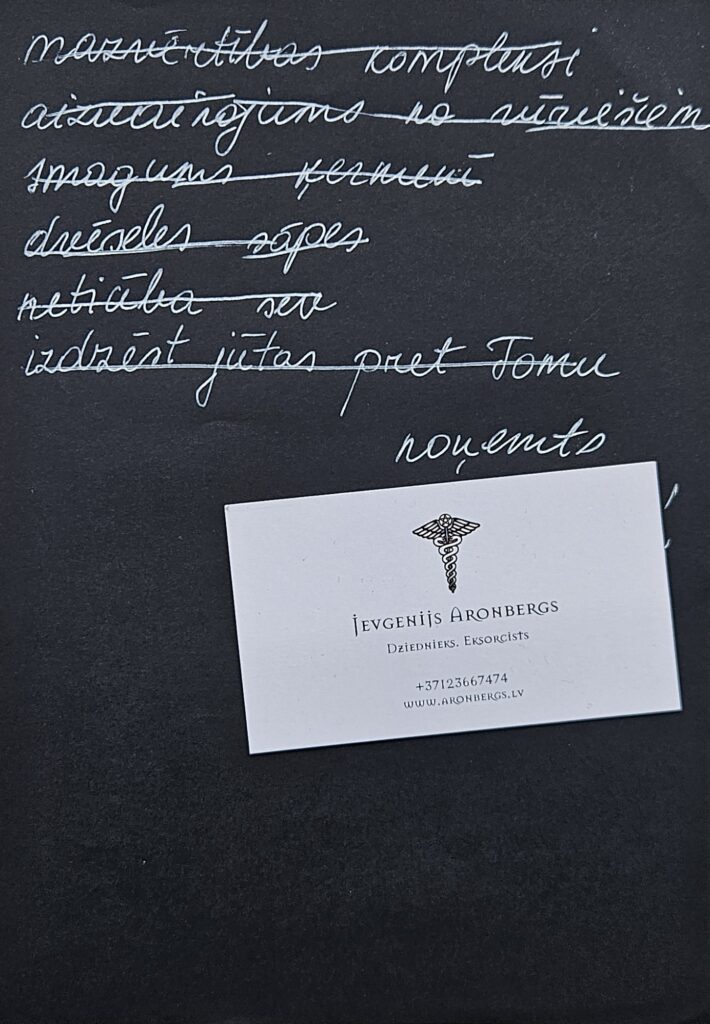 mazvērtības kompleksi
aizvainojums no vīriešiem
smagums ķermenī
dvēseles sāpes
neticība sev
izdzēst jūtas pret Tomu
noņemts
Jevgenijs Aronbergs
Dziednieks. Eksorcists
+37123667474
www.aronbergs.lv